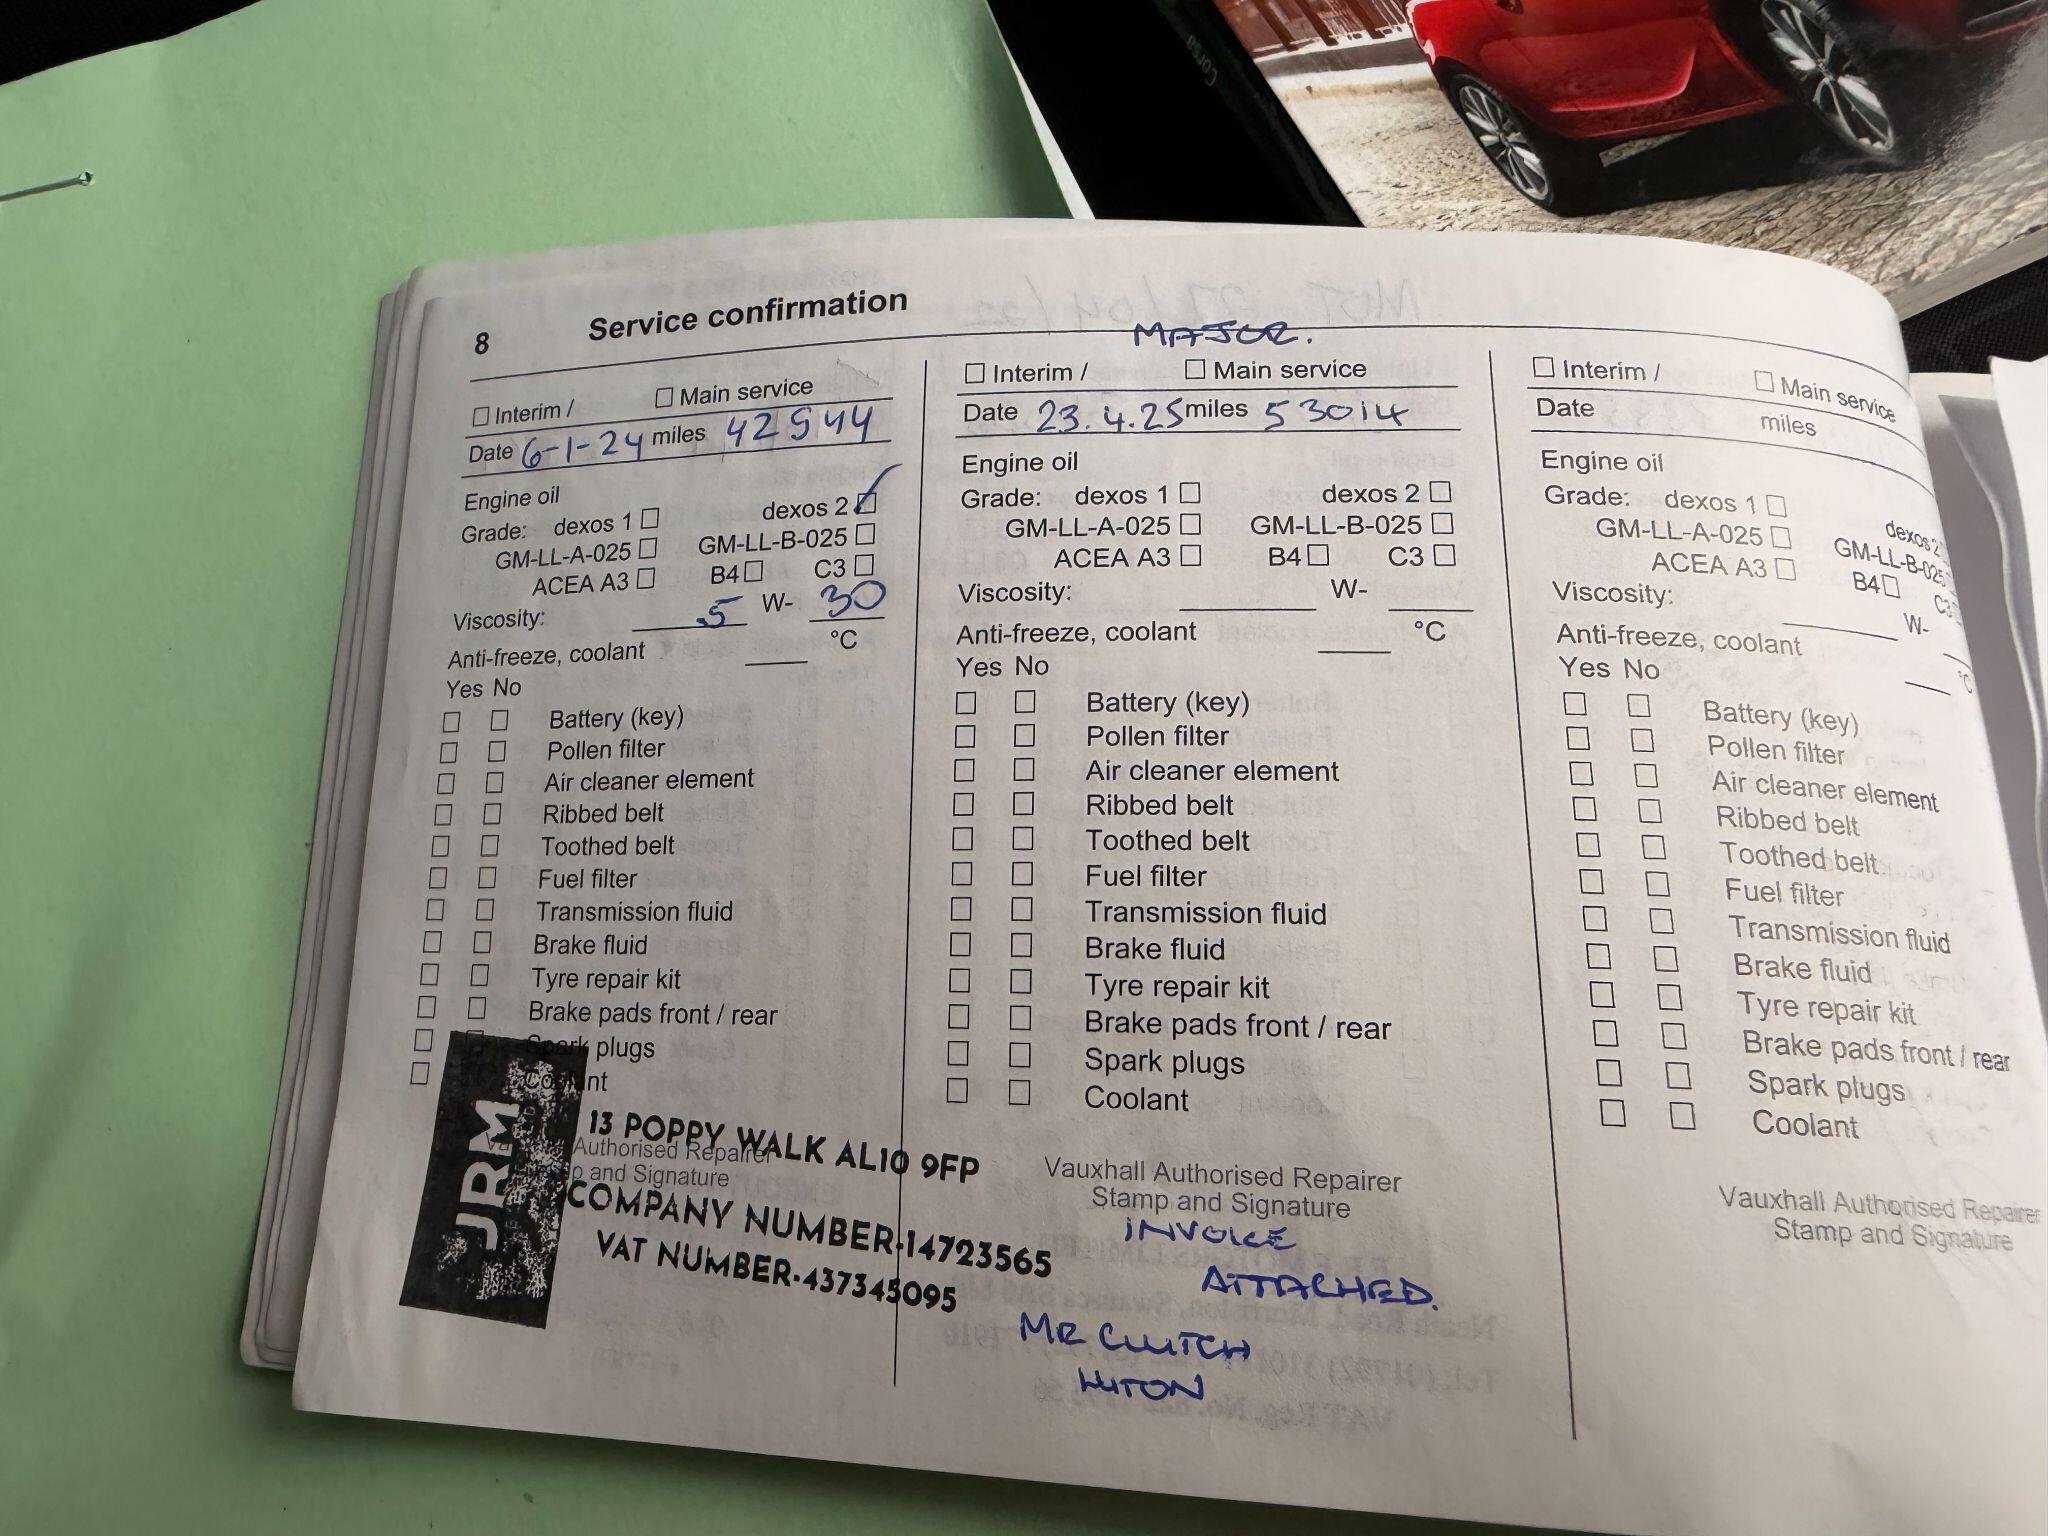 Corsa
8 Service confirmation
☐ Interim / ☐ Main service
Date 6-1-24 miles 42544
Engine oil
Grade: dexos 1 ☐ dexos 2 ☑
GM-LL-A-025 ☐ GM-LL-B-025 ☐
ACEA A3 ☐ B4 ☐ C3 ☐
Viscosity: 5 W- 30
Anti-freeze, coolant ____ °C
Yes No
☐ ☐ Battery (key)
☐ ☐ Pollen filter
☐ ☐ Air cleaner element
☐ ☐ Ribbed belt
☐ ☐ Toothed belt
☐ ☐ Fuel filter
☐ ☐ Transmission fluid
☐ ☐ Brake fluid
☐ ☐ Tyre repair kit
☐ ☐ Brake pads front / rear
☐ ☐ Spark plugs
☐ ☐ Coolant
JRM
13 POPPY WALK AL10 9FP
Authorised Repairer
and Signature
COMPANY NUMBER-14723565
VAT NUMBER-437345095
MAJOR.
☐ Interim / ☐ Main service
Date 23.4.25 miles 53014
Engine oil
Grade: dexos 1 ☐ dexos 2 ☐
GM-LL-A-025 ☐ GM-LL-B-025 ☐
ACEA A3 ☐ B4 ☐ C3 ☐
Viscosity: ____ W- ____
Anti-freeze, coolant ____ °C
Yes No
☐ ☐ Battery (key)
☐ ☐ Pollen filter
☐ ☐ Air cleaner element
☐ ☐ Ribbed belt
☐ ☐ Toothed belt
☐ ☐ Fuel filter
☐ ☐ Transmission fluid
☐ ☐ Brake fluid
☐ ☐ Tyre repair kit
☐ ☐ Brake pads front / rear
☐ ☐ Spark plugs
☐ ☐ Coolant
Vauxhall Authorised Repairer
Stamp and Signature
INVOICE
ATTACHED.
MR CLUTCH
LUTON
☐ Interim / ☐ Main service
Date miles
Engine oil
Grade: dexos 1 ☐ dexos 2
GM-LL-A-025 ☐ GM-LL-B-025
ACEA A3 ☐ B4 ☐ C3
Viscosity: ____ W-
Anti-freeze, coolant ____ °C
Yes No
☐ ☐ Battery (key)
☐ ☐ Pollen filter
☐ ☐ Air cleaner element
☐ ☐ Ribbed belt
☐ ☐ Toothed belt
☐ ☐ Fuel filter
☐ ☐ Transmission fluid
☐ ☐ Brake fluid
☐ ☐ Tyre repair kit
☐ ☐ Brake pads front / rear
☐ ☐ Spark plugs
☐ ☐ Coolant
Vauxhall Authorised Repairer
Stamp and Signature